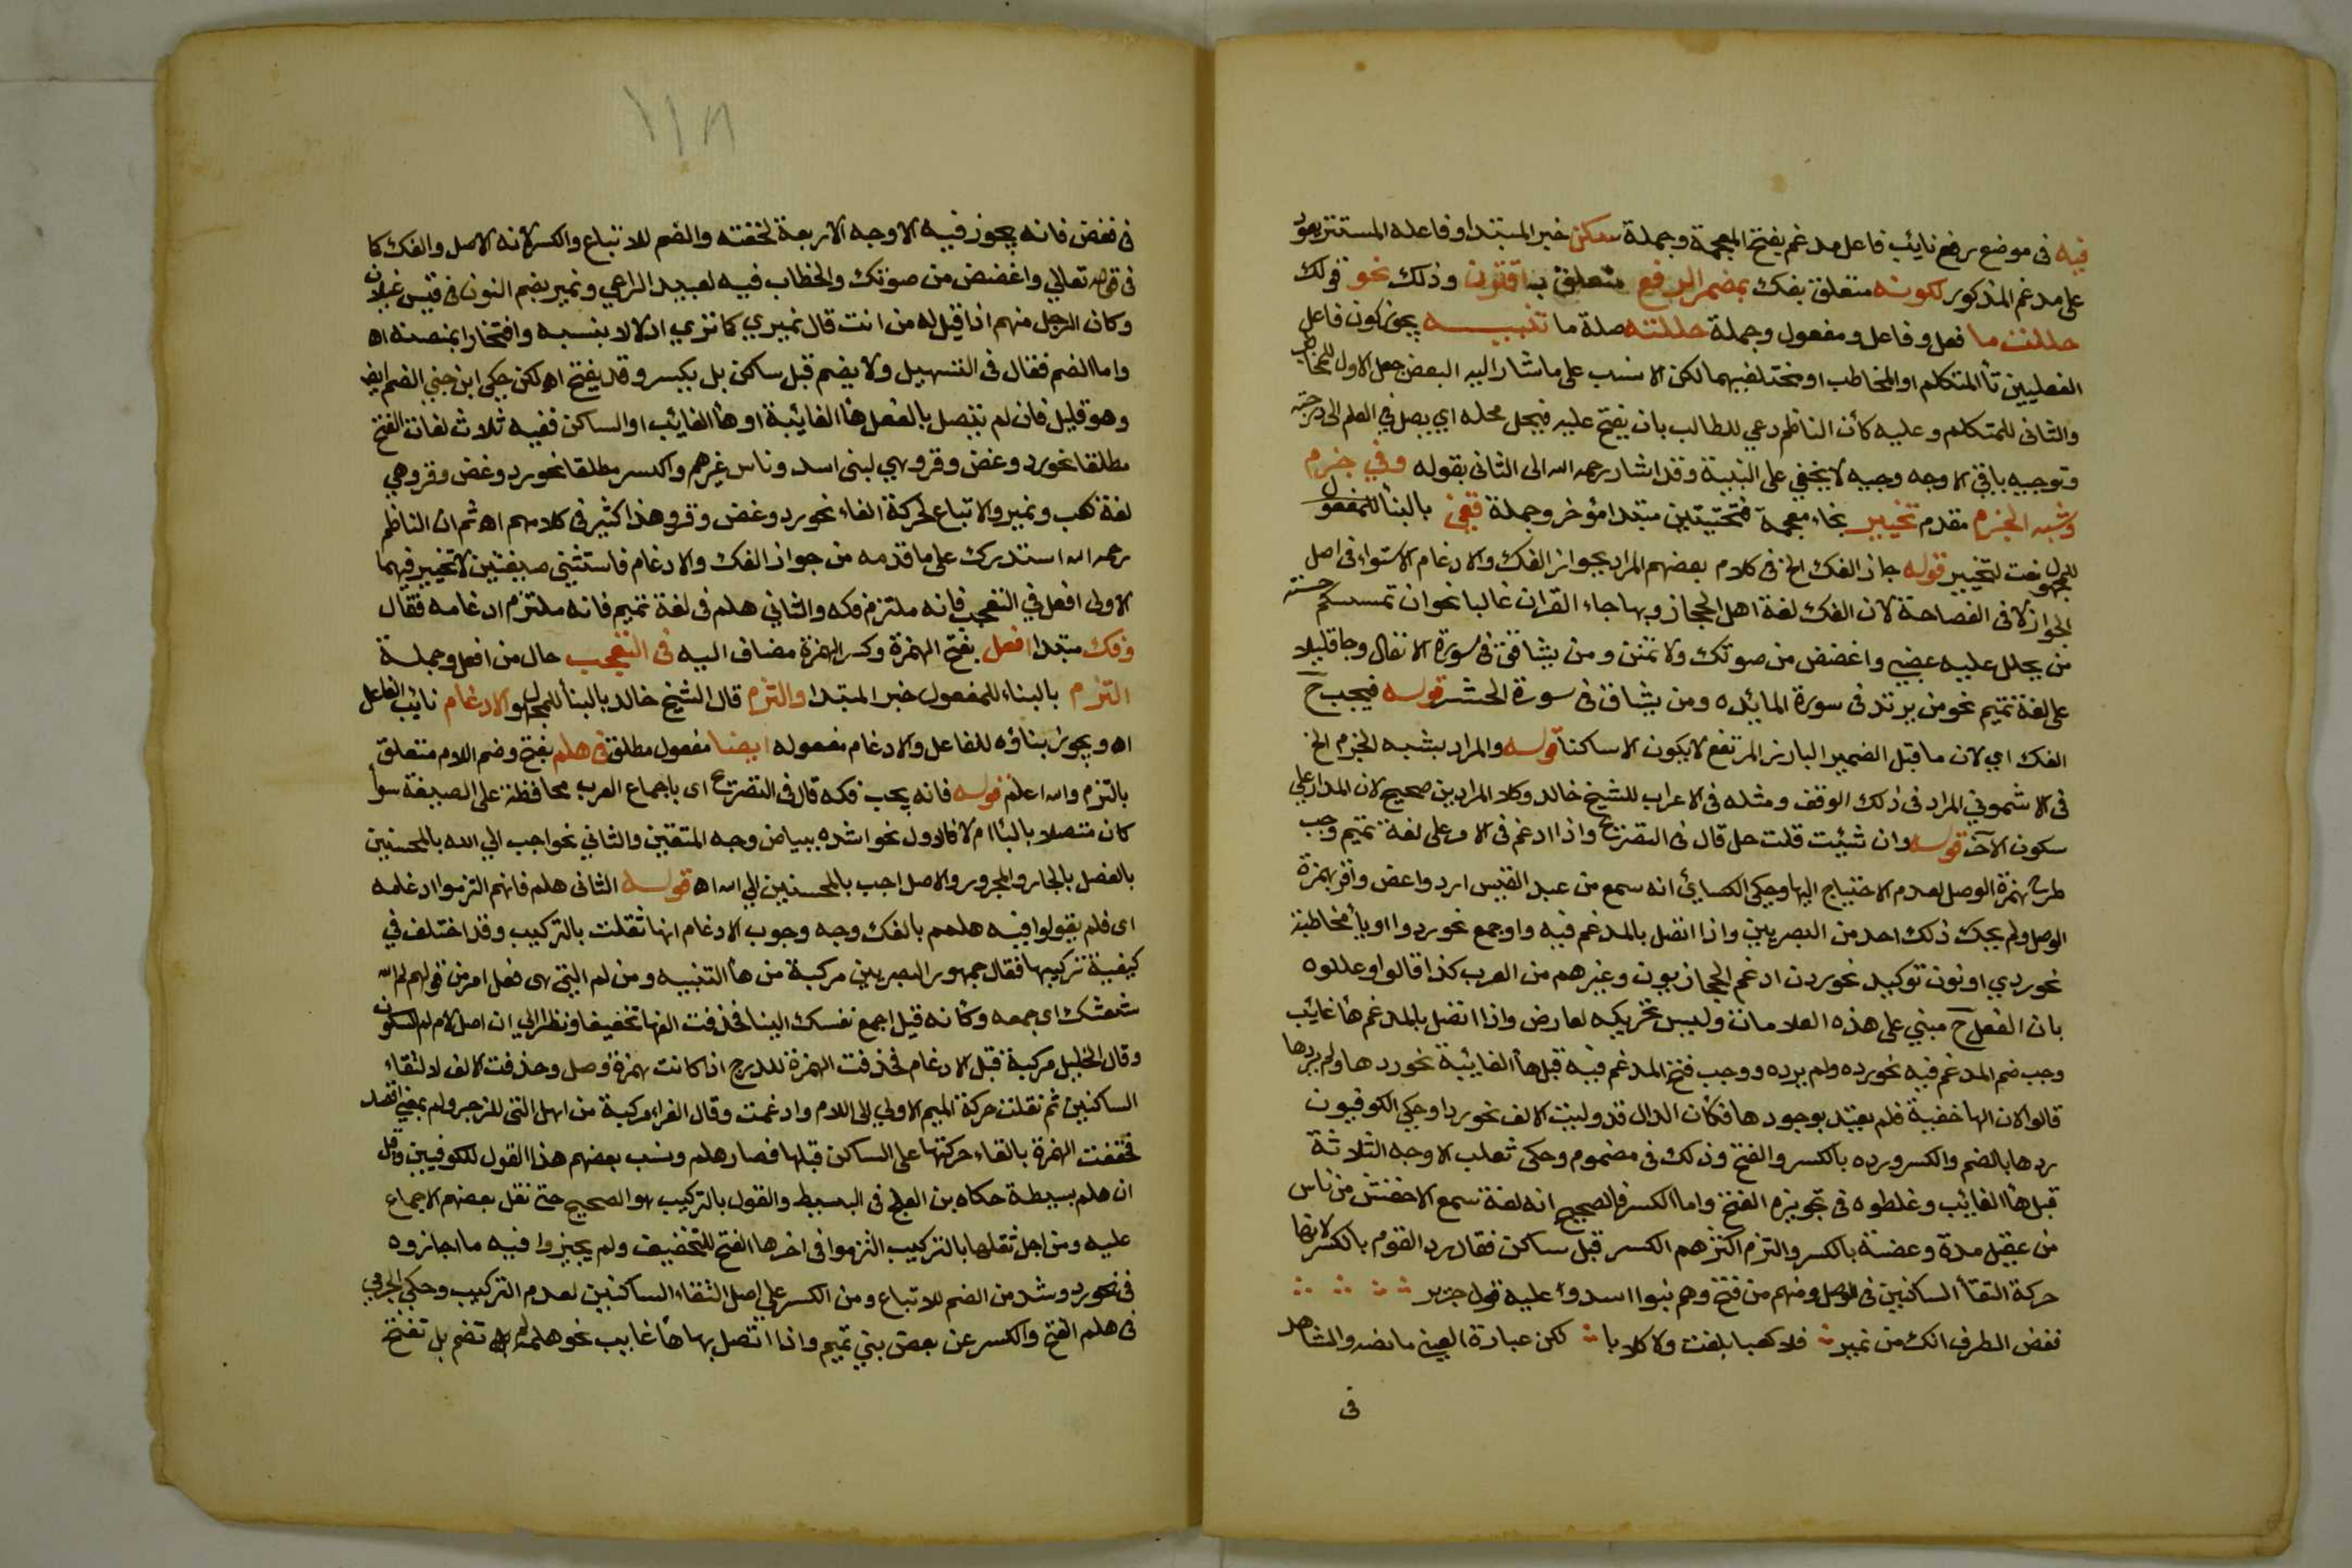 فيه فى موضع رفع نائب فاعل مدغم بفتح المعجمة وجملة سكن خبر المبتدا وفاعله المستتر يعود
على مدغم المذكور لكونه متعلق بفك بمضمر الرفع متعلق بـ اقترن وذلك نحو قولك
حللت ما فعل وفاعل ومفعول وجملة حللته صلة ما تنبيـــه يجوز كون فاعل
الفعليين تأ المتكلم او المخاطب او مختلفيهما لكن الانسب على ما اشار اليه البعض جعل الاول للمخاطب
والثانى للمتكلم وعليه كأن الناظم دعي للطالب بان يفتح عليه فيحل محله اي يصل في العلم الى درجته
وتوجيه باقى الاوجه وجيه لا يخفي على النبيه وقد اشار رحمه الله الى الثانى بقوله وفي جزم
وشبه الجزم مقدم تخيير بخاء معجمة فتحتيتين مبتدا مؤخر وجملة قفي بالبنأ للمفعول
للمجهول نعت لتخيير قوله جاز الفك الخ فى كلام بعضهم المراد بجواز الفك والادغام الاستواء فى اصل
الجواز لا فى الفصاحة لان الفك لغة اهل الحجاز وبها جاء القران غالبا نحو ان تمسسكم حسنة
من يحلل عليه غضبي واغضض من صوتك ولا تمنن ومن يشاقق فى سورة الانفال وجا قليلا
على لغة تميم نحو من يرتد فى سورة المائده ومن يشاق فى سورة الحشر قوله فيجب ح
الفك اي لان ما قبل الضمير البارز المرتفع لا يكون الا ساكنا قوله والمراد بشبه الجزم الخ
فى الاشموني المراد فى ذلك الوقف ومثله فى الاعراب للشيخ خالد وكلا المرادين صحيح لان المدار على
سكون الآخر قوله وان شئت قلت حل قال فى التصريح واذا ادغم فى الامر على لغة تميم وجب
طرح همزة الوصل لعدم الاحتياج اليها وحكى الكسائ انه سمع من عبد القيس ارد واغض وافر بهمزة
الوصل ولم يحك ذلك احد من البصريين واذا اتصل بالمدغم فيه واو جمع نحو ردوا او يأ مخاطبة
نحو ردي او نون توكيد نحو ردن ادغم الحجازيون وغيرهم من العرب كذا قالوا وعللوه
بان الفعل ح مبني على هذه العلامات وليس تحريكه لعارض واذا اتصل بالمدغم هأ غائب
وجب ضم المدغم فيه نحو رده ولم يرده ووجب فتح المدغم فيه قبل هأ الغائبة نحو ردها ولم يردها
قالوا لان الها خفية فلم يعتد بوجودها فكأن الدال قد وليت الالف نحو ردا وحكي الكوفيون
ردها بالضم والكسر ورده بالكسر والفتح وذلك فى مضموم وحكى ثعلب الاوجه الثلاثة
قبل هأ الغائب وغلطوه فى تجويزه الفتح واما الكسر فالصحيح انه لغة سمع الاخفش من ناس
من عقيل مدة وعضة بالكسر والتزم اكثرهم الكسر قبل ساكن فقال رد القوم بالكسر لانها
حركة التقأ الساكنين فى الاصل ومنهم من فتح وهم بنوا اسد وعليه قول جرير
فغض الطرف انك من نمير فلا كعبا بلغت ولا كلابا لكن عبارة العينى ما نصه والشاهد
فى
١١٨
فى فغض فانه يجوز فيه الاوجه الاربعة لخفته والضم للاتباع والكسر لانه الاصل والفك كا
فى قوله تعالي واغضض من صوتك والخطاب فيه لعبيد الراعي ونمير بضم النون فى قيس غيلان
وكان الرجل منهم اذا قيل له من انت قال نميري كا تزي ادلالا بنسبه وافتخارا بمنصبه اه
واما الضم فقال فى التسهيل ولا يضم قبل ساكن بل يكسر وقد يفتح اه لكن حكى ابن جني الضم ايضا
وهو قليل فان لم يتصل بالفعل هأ الغائبة او هأ الغائب او الساكن ففيه ثلاث لغات الفتح
مطلقا نحو رد وغض وفر وهي لبنى اسد وناس غيرهم والكسر مطلقا نحو رد وغض وفر وهي
لغة كعب ونمير والاتباع لحركة الفاء نحو رد وغض وفر وهذا كثير فى كلامهم اه ثم ان الناظم
رحمه الله استدرك على ما قدمه من جواز الفك والادغام فاستثنى صيغتين لا تخيير فيهما
الاولى افعل في التعجب فانه ملتزم فكه والثاني هلم فى لغة تميم فانه ملتزم ادغامه فقال
وفك مبتدا افعل بفتح الهمزة وكسر الهمزة مضاف اليه فى التعجب حال من افعل وجملة
التزم بالبناء للمفعول خبر المبتدا والتزم قال الشيخ خالد بالبنأ للمجهول والادغام نائب الفاعل
اه ويجوز بناؤه للفاعل والادغام مفعوله ايضا مفعول مطلق فى هلم بفتح وضم اللام متعلق
بالتزم والله اعلم قوله فانه يجب فكه قال فى التصريح اى باجماع العرب محافظة على الصيغة سوأ
كان متصلا بالبأ ام لا فالاول نحو اشدد ببياض وجه المتقين والثاني نحو احبب الي الله بالمحسنين
بالفصل بالجار والمجرور والاصل احبب بالمحسنين الي الله اه قوله الثانى هلم فانهم التزموا ادغامه
اى فلم يقولوا فيه هلمم بالفك وجه وجوب الادغام انها ثقلت بالتركيب وقد اختلف في
كيفية تركيبها فقال جمهور البصريين مركبة من هأ التنبيه ومن لم التي هى فعل امر من قولهم لم الله
شعثك اى جمعه وكأنه قيل اجمع نفسك الينا فحذفت الفها تخفيفا ونظرا الي ان اصل لام لم السكون
وقال الخليل مركبة قبل الادغام فحذفت الهمزة للدرج اذا كانت همزة وصل وحذفت الالف لالتقاء
الساكنين ثم نقلت حركة الميم الاولي الى اللام وادغمت وقال الفراء مركبة من اهل التى للزجر ولم بمعنى اقصد
فخففت الهمزة بالقاء حركتها على الساكن قبلها فصار هلم ونسب بعضهم هذا القول للكوفيين وقيل
ان هلم بسيطة حكاه بن العلج فى البسيط والقول بالتركيب هو الصحيح حتى نقل بعضهم الاجماع
عليه ومن اجل ثقلها بالتركيب التزموا فى اخرها الفتح للتخفيف ولم يجيزوا فيه ما اجازوه
فى نحو رد وشد من الضم للاتباع ومن الكسر على اصل التقاء الساكنين لعدم التركيب وحكي الجرمي
فى هلم الفتح والكسر عن بعض بني تميم واذا اتصل بها هأ غايب نحو هلمه لم تضم بل تفتح